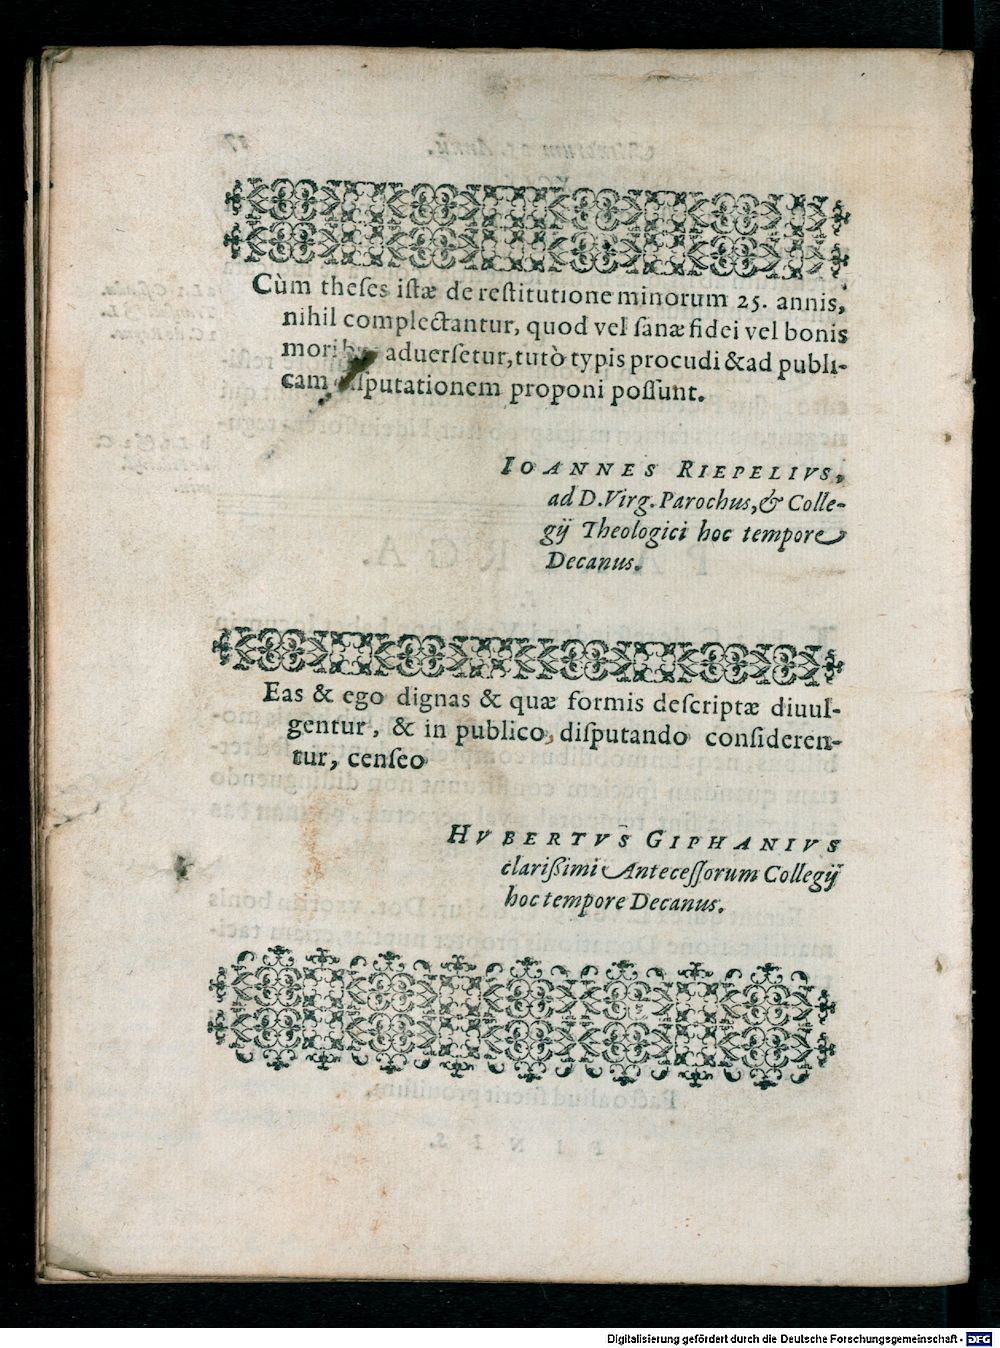 Cùm theses istæ de restitutione minorum 25. annis,
nihil complectantur, quod vel sanæ fidei vel bonis
aduersetur, tutò typis procudi & ad publi-
cam disputationem proponi possunt.
IOANNES RIEPELIVS,
ad D. Virg. Parochus, & Colle-
gij Theologici hoc tempore
Decanus.
Eas & ego dignas & quæ formis descriptæ diuul-
gentur, & in publico, disputando consideren-
tur, censeo
HVBERTVS GIPHANIVS
clarißimi Antecessorum Collegij
hoc tempore Decanus.
Digitalisierung gefördert durch die Deutsche Forschungsgemeinschaft - DFG